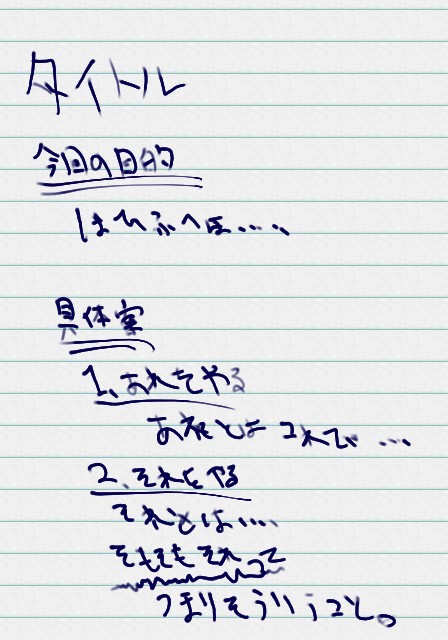 タイトル
今回の目的
はひふへほ....
具体案
1、あれをやる
あれとは これで、...
2、それをやる
それとは....
そもそもそれって
つまりそういうこと。